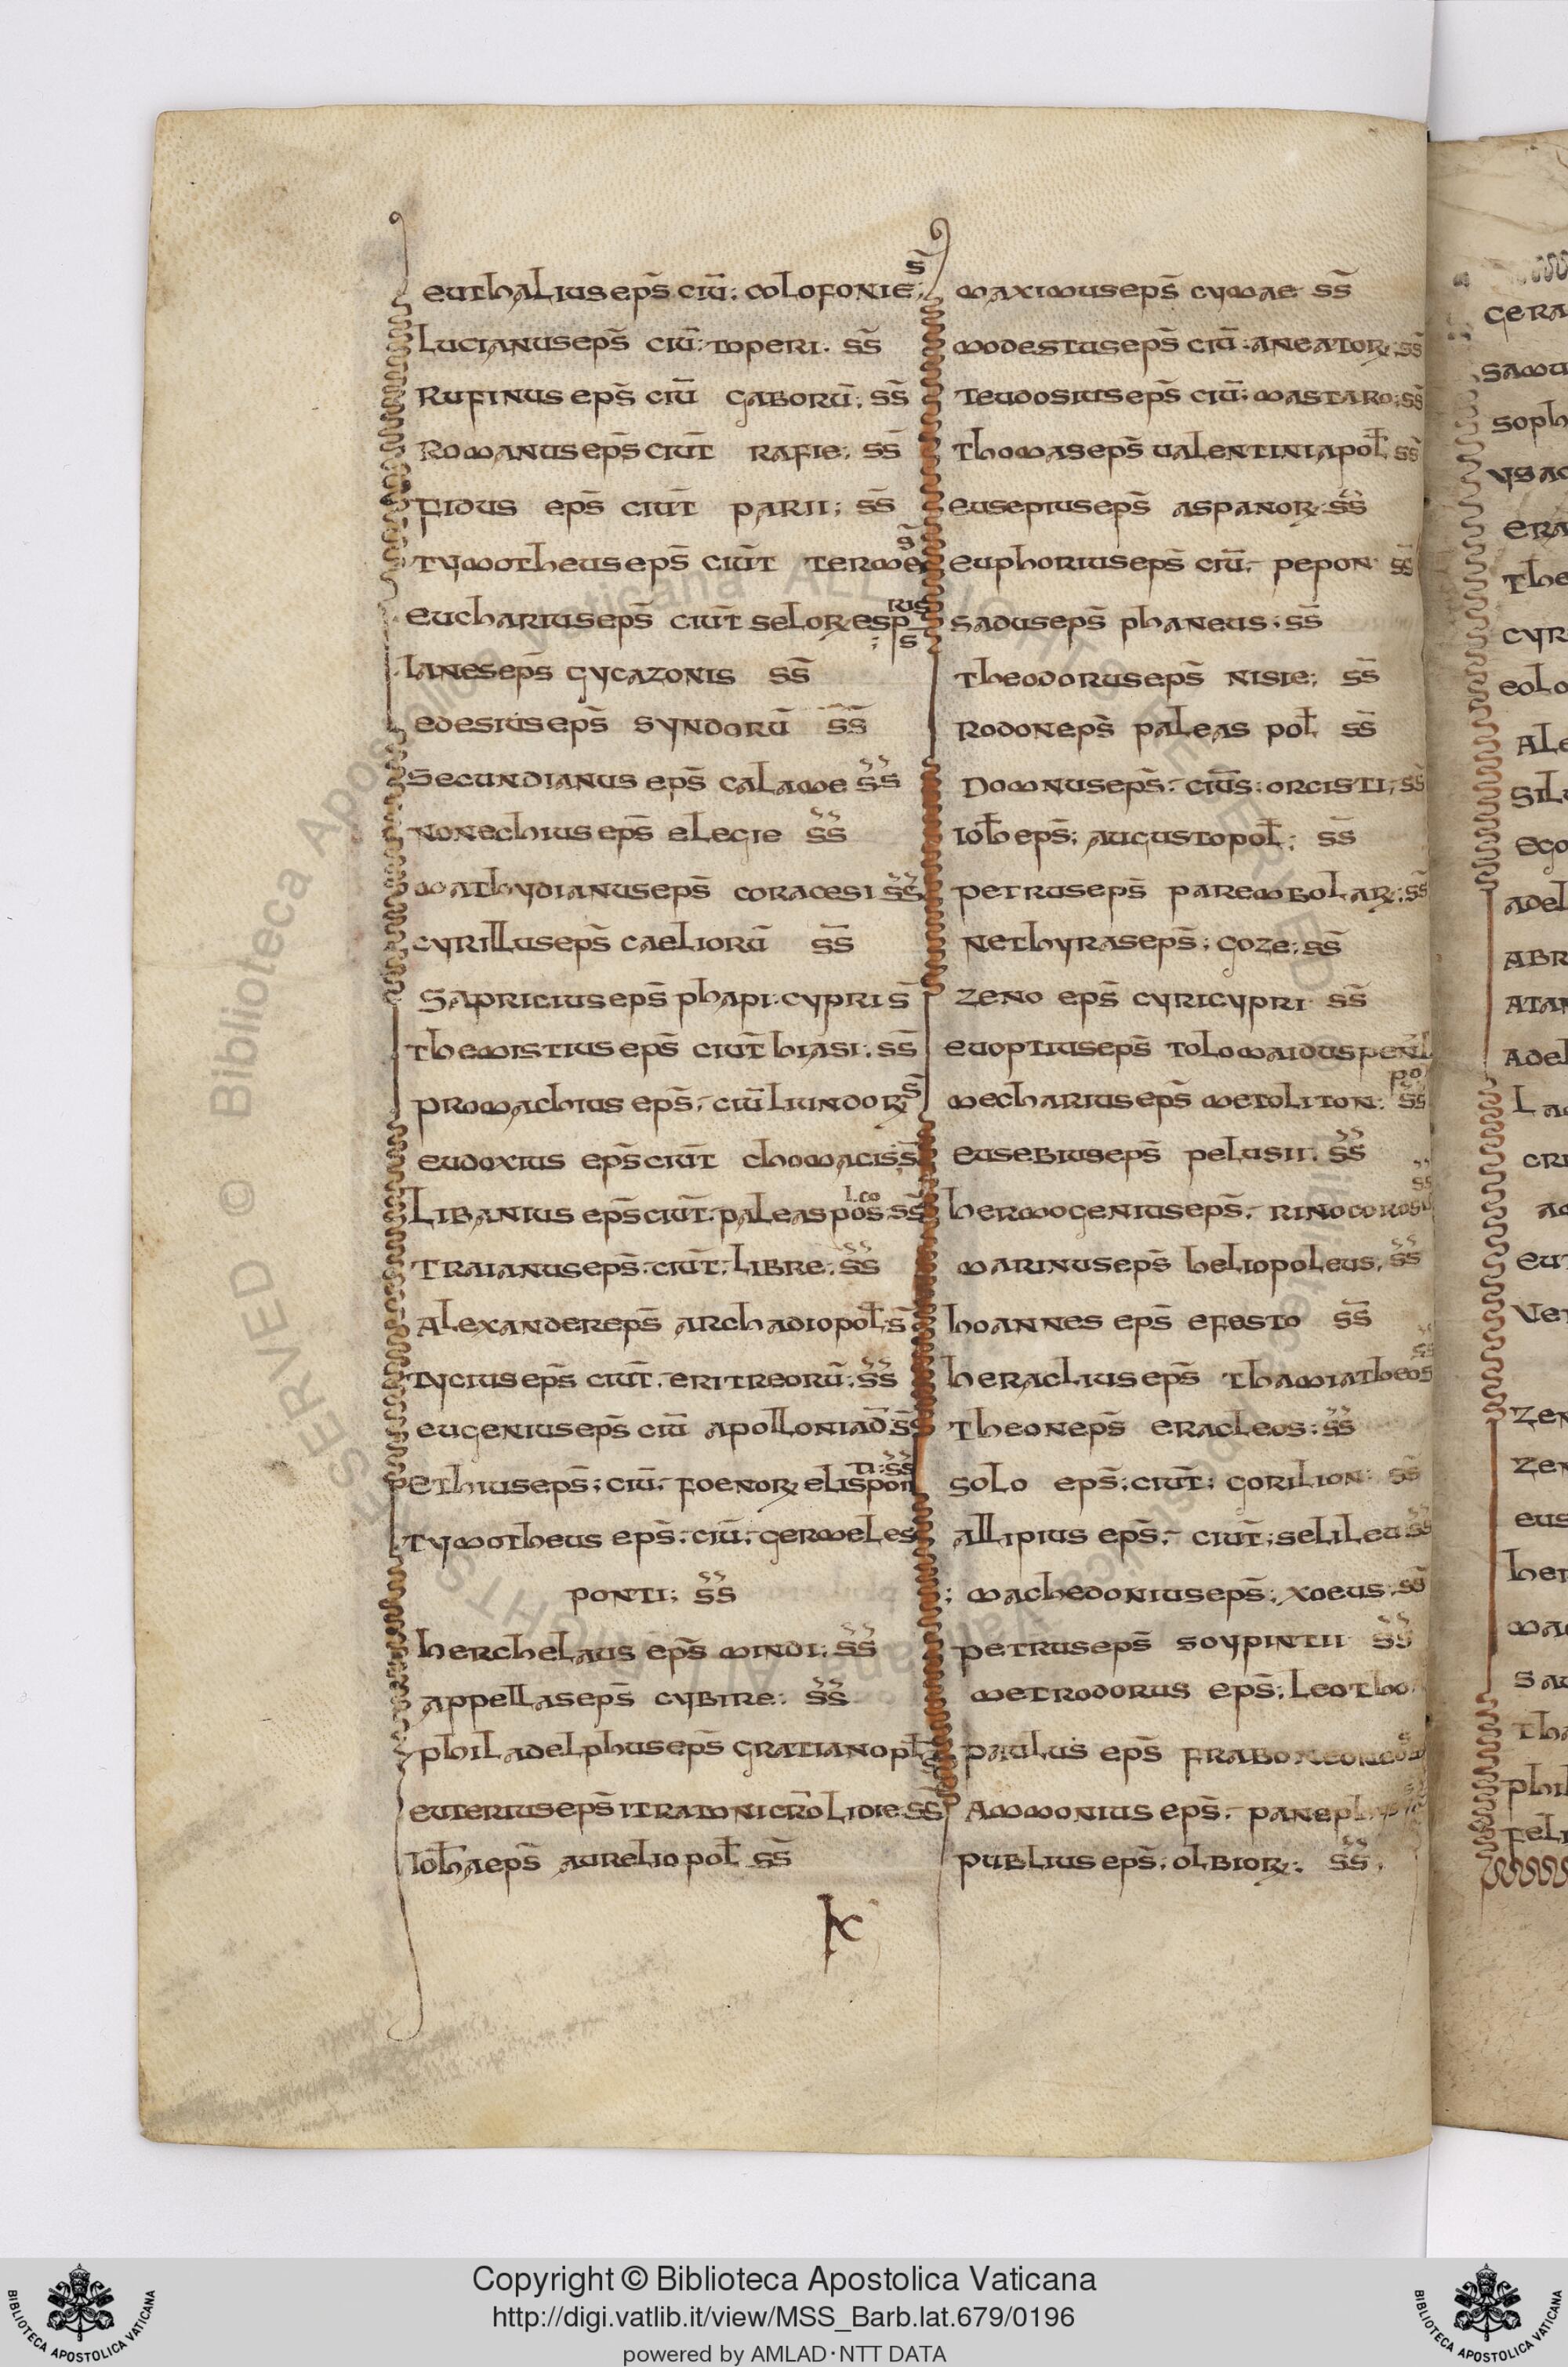 euthalius eps̄ ciū: colofonie: s̄
Lucianus eps̄ ciū: toperi. ss̄
Rufinus eps̄ ciū gaborū: ss̄
Romanus eps̄ ciut̄ rafie: ss̄
Fidus eps̄ ciut̄ parii; ss̄
Tymotheus eps̄ ciut̄ terme s̄
eucharius eps̄
lanes eps̄ gycazonis ss̄
edesius eps̄ syndorū ss̄
Secundianus eps̄ calame ss̄
nonechius eps̄ elegie ss̄
mathydianus eps̄ coracesi ss̄
cyrillus eps̄ caeliorū ss̄
Sapricius eps̄ phapi. cypri s̄
themistius eps̄ ciut̄ hiasi. ss̄
promachius eps̄. ciū
eudoxius eps̄ ciut̄ chomacis. s̄
Libanius eps̄ ciut̄. paleaspo
Traianus eps̄. ciut̄. Libre. ss̄
Alexander eps̄ archadiopol̄. s̄
Tycius eps̄ ciut̄. eritreorū: ss̄
eugenius eps̄ ciū apolloniad̄ ss̄
pethius eps̄; ciū. foenor elispon ti: ss̄
Tymotheus eps̄. ciū. germeles
ponti; ss̄
herchelaus eps̄ mindi: ss̄
appellas eps̄ cybire: ss̄
philadelphus eps̄ gratianopl̄
euterius eps̄
Ioh̄a eps̄ aureliopol̄ ss̄
maximus eps̄ cymae ss̄
modestus eps̄ ciū. aneator: ss̄
Teudosius eps̄ ciū: mastaro: ss̄
Thomas eps̄ ualentiniapol̄ ss̄
eusepius eps̄ aspanor: ss̄
euphorius eps̄ ciū. pepon ss̄
sadus eps̄ phaneus: ss̄
Theodorus eps̄ nisie; ss̄
Rodon eps̄ paleas pol̄ ss̄
Domnus eps̄. ciūs: orcisti; ss̄
Ioh̄ eps̄; augustopol̄; ss̄
petrus eps̄ parembolar: ss̄
Nethyras eps̄; goze: ss̄
Zeno eps̄ cyri cypri ss̄
evoptius eps̄ tolomaidus pen
mecharius eps̄ metoliton: ss̄
eusebius eps̄ pelusii. ss̄
hermogenius eps̄. rinocoros
marinus eps̄ heliopoleus. ss̄
hoannes eps̄ efesto ss̄
heraclius eps̄ thamiatheos ss̄
Theon eps̄ eracleos: ss̄
solo eps̄: ciut̄: corilion ss̄
allipius eps̄. ciut̄; selileu ss̄
; machedonius eps̄: xoeus. ss̄
petrus eps̄ soypintii ss̄
metrodorus eps̄: Leotho
paulus eps̄
Ammonius eps̄.
publius eps̄. olbior: ss̄
Copyright © Biblioteca Apostolica Vaticana
http://digi.vatlib.it/view/MSS_Barb.lat.679/0196
powered by AMLAD·NTT DATA
BIBLIOTECA APOSTOLICA VATICANA
BIBLIOTECA APOSTOLICA VATICANA